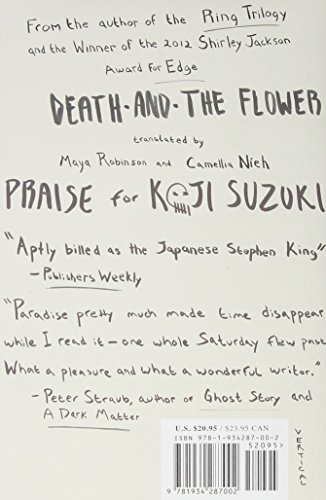 From the author of the Ring Trilogy
and the Winner of the 2012 Shirley Jackson
Award for Edge
DEATH·AND·THE FLOWER
translated by
Maya Robinson and Camellia Nieh
PRAISE for KOJI SUZUKI
"Aptly billed as the Japanese Stephen King"
—Publishers Weekly
"Paradise pretty much made time disappear
while I read it—one whole Saturday flew past.
What a pleasure and what a wonderful writer."
—Peter Straub, author of Ghost Story and
A Dark Matter
U.S. $20.95 / $23.95 CAN
ISBN 978-1-934287-00-2
52095>
9 781934 287002
VERTICAL